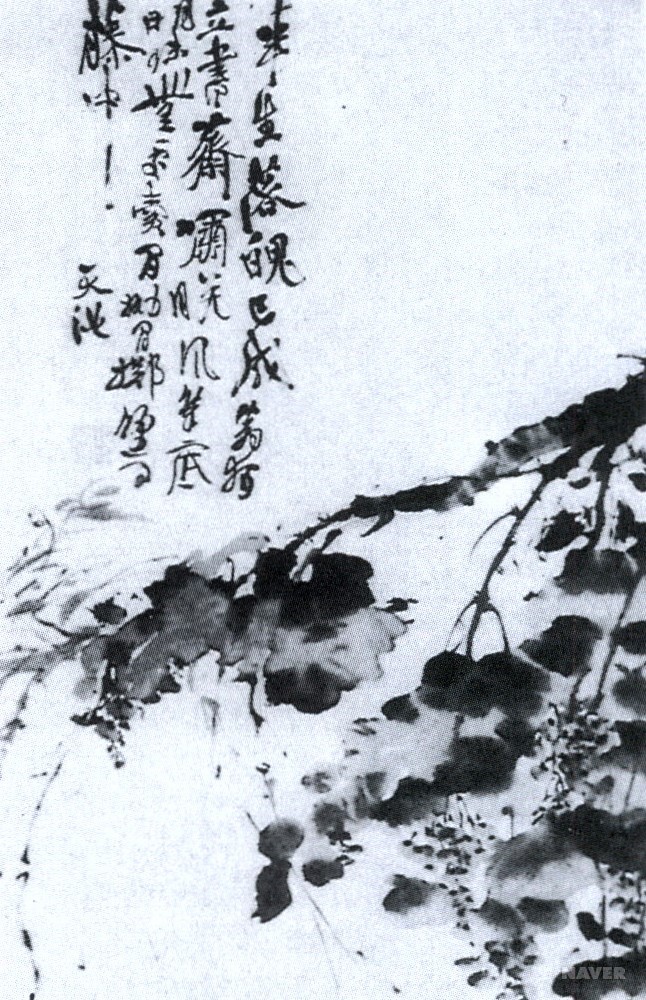 半生落魄已成翁獨
立書齋嘯晚風筆底
明珠無處賣閒拋閒擲野
藤中
天池
NAVER